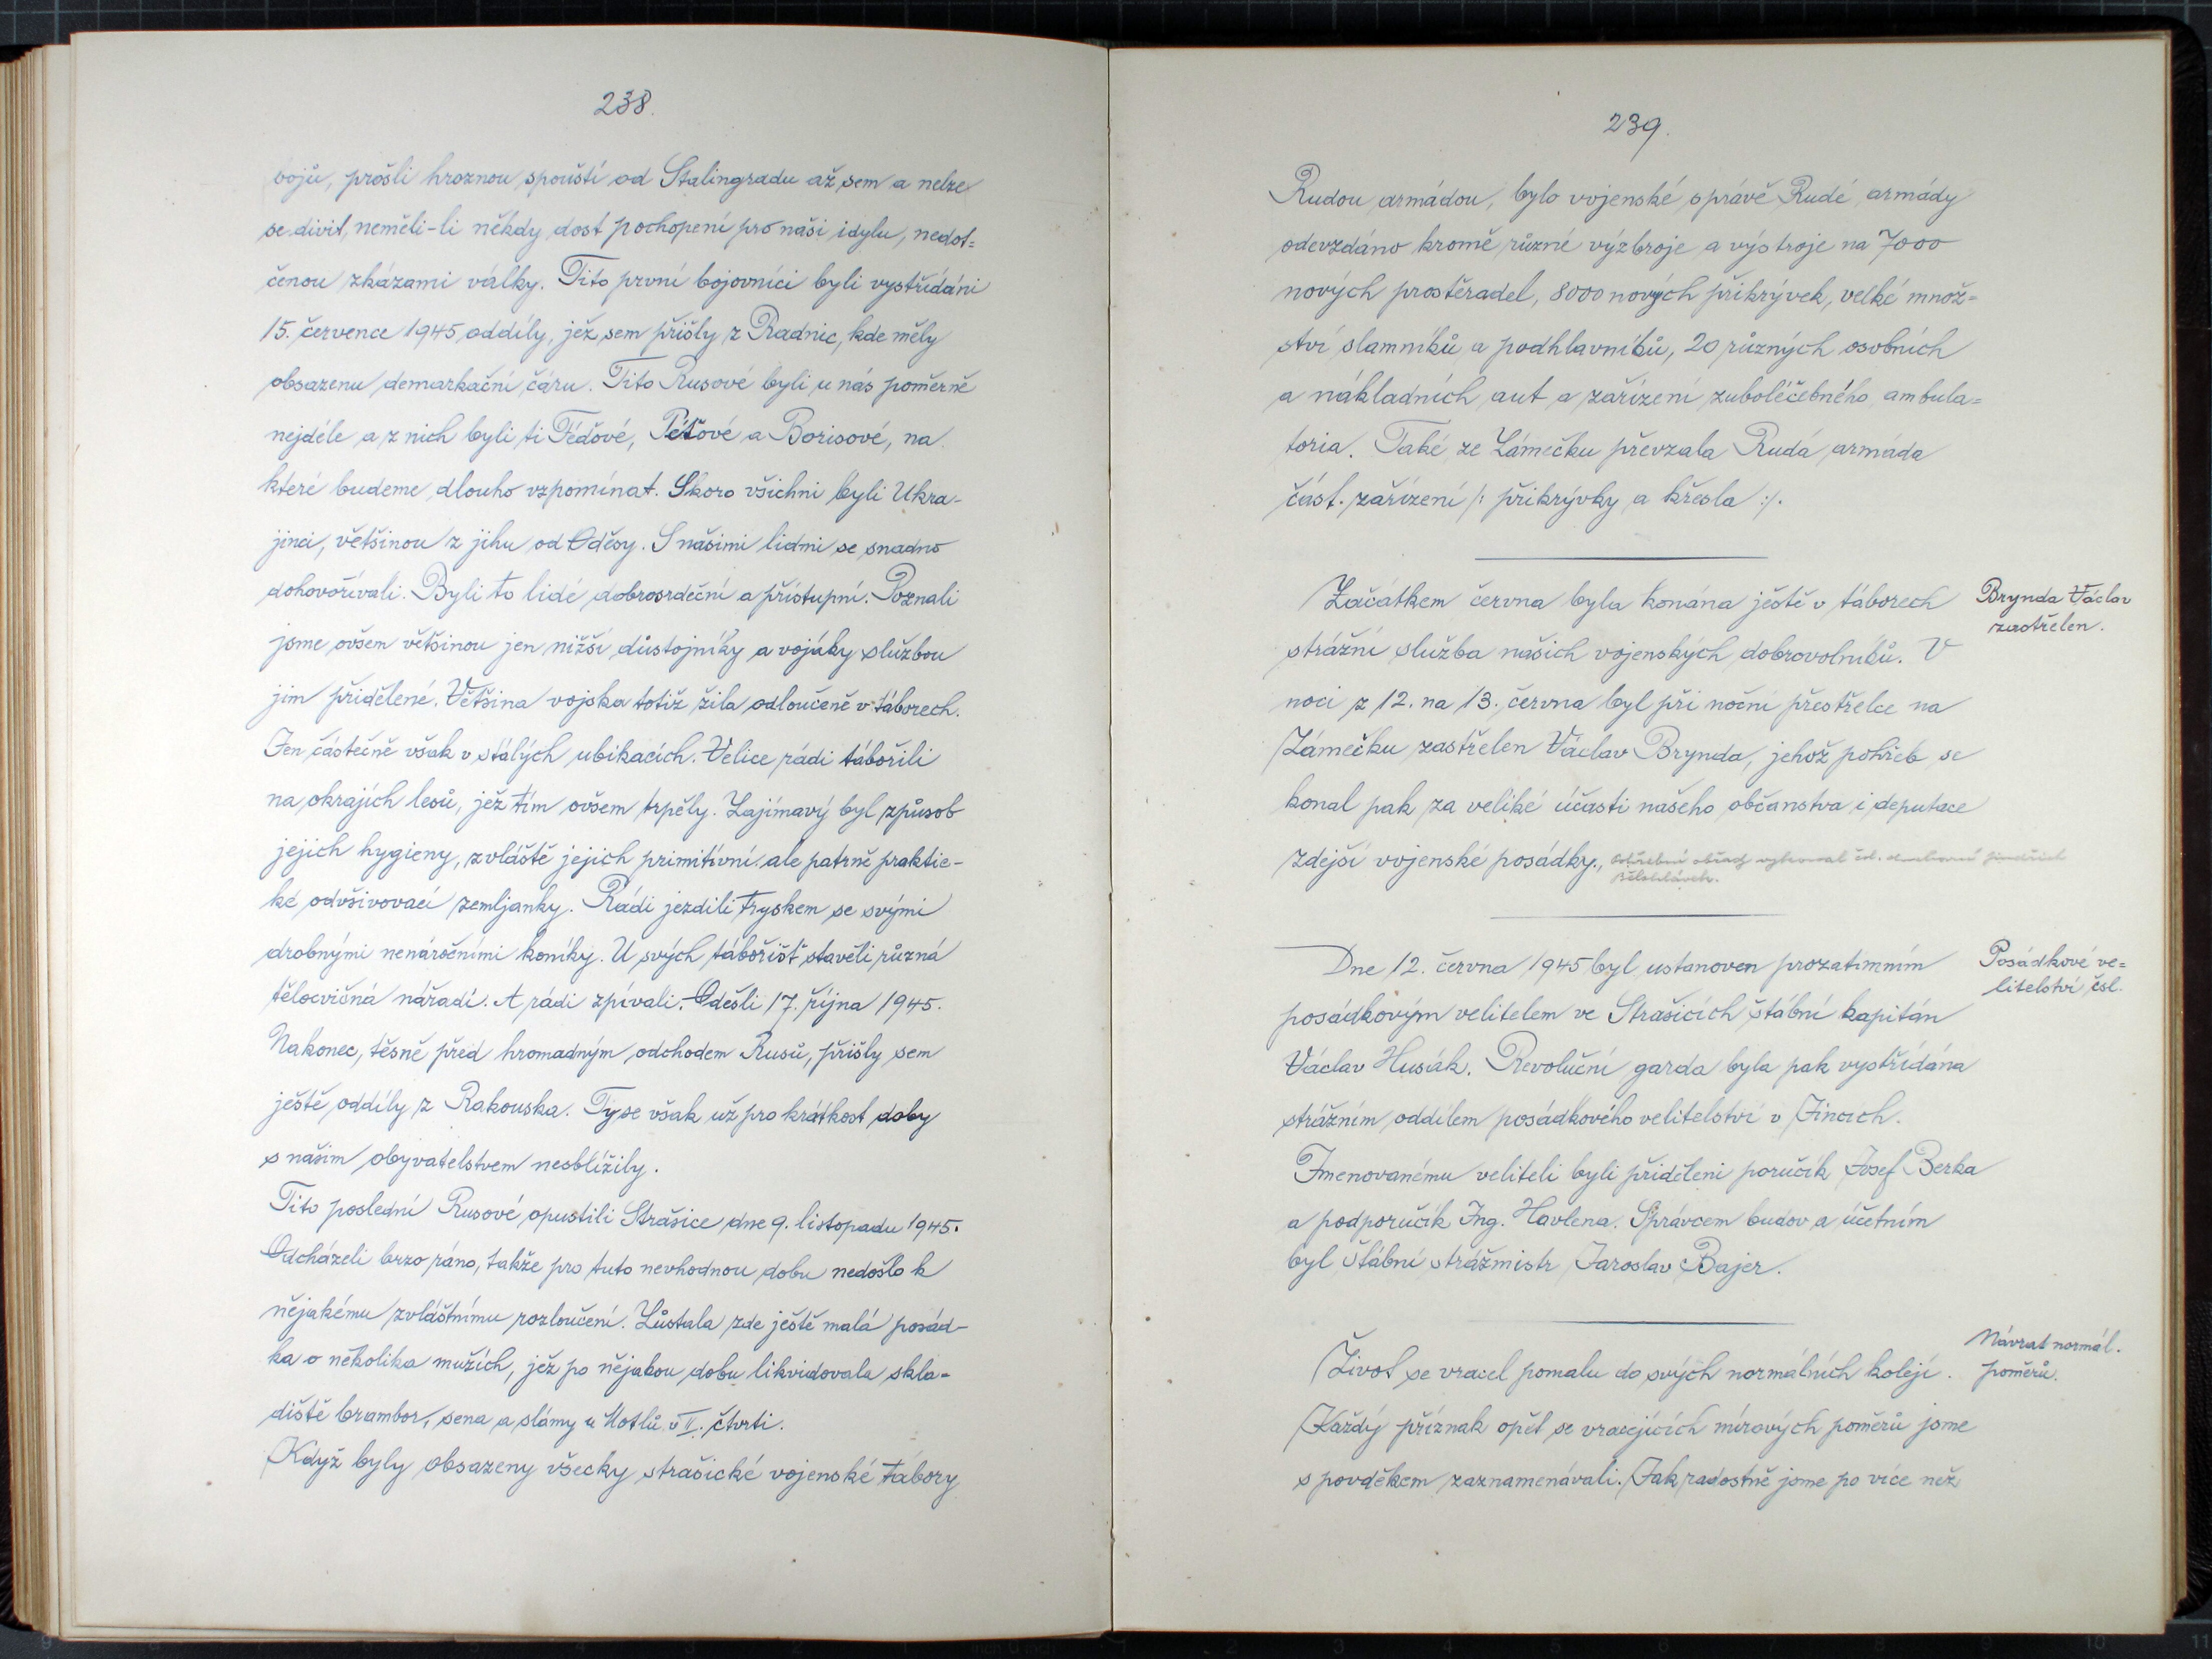 238.
bojů, prošli hroznou spouští od Stalingradu až sem a nelze
se divit, neměli-li někdy dost pochopení pro naši idylu, nedot=
čenou zkázami války. Tito první bojovníci byli vystřídáni
15. července 1945 oddíly, jež sem přišly z Radnic, kde měly
obsazenu demarkační čáru. Tito Rusové byli u nás poměrně
nejdéle a z nich byli ti Féďové, Péťové a Borisové, na
které budeme dlouho vzpomínat. Skoro všichni byli Ukra-
jinci, většinou z jihu od Oděsy. S našimi lidmi se snadno
dohovořívali. Byli to lidé dobrosrdeční a přístupní. Poznali
jsme ovšem většinou jen nižší důstojníky a vojáky službou
jim přidělené. Většina vojska totiž žila odloučeně v táborech.
Jen částečně však v stálých ubikacích. Velice rádi tábořili
na okrajích lesů, jež tím ovšem trpěly. Zajímavý byl způsob
jejich hygieny, zvláště jejich primitívní ale patrně praktic-
ké odvšivovací zemljanky. Rádi jezdili tryskem se svými
drobnými nenáročními koníky. U svých tábořišť stavěli různá
tělocvičná nářadí. A rádi zpívali. Odešli 17. října 1945.
Nakonec, těsně před hromadným odchodem Rusů, přišly sem
ještě oddíly z Rakouska. Ty se však už pro krátkost doby
s naším obyvatelstvem nesblížily.
Tito poslední Rusové opustili Strašice dne 9. listopadu 1945.
Odcházeli brzo ráno, takže pro tuto nevhodnou dobu nedošlo k
nějakému zvláštnímu rozloučení. Zůstala zde ještě malá posád-
ka o několika mužích, jež po nějakou dobu likvidovala skla-
diště brambor, sena a slámy u Hotlů v II. čtvrti.
Když byly obsazeny všecky strašické vojenské tábory
239.
Rudou armádou, bylo vojenské správě Rudé armády
odevzdáno kromě různé výzbroje a výstroje na 7000
nových prostěradel, 8000 nových přikrývek, velké množ=
ství slamníků a podhlavníků, 20 různých osobních
a nákladních aut a zařízení zuboléčebného ambula=
toria. Také ze Zámečku převzala Rudá armáda
část. zařízení /: přikrývky a křesla :/.
Začátkem června byla konána ještě v táborech
Brynda Václav
zastřelen.
strážní služba našich vojenských dobrovolníků. V
noci z 12. na 13. června byl při noční přestřelce na
Zámečku zastřelen Václav Brynda, jehož pohřeb se
konal pak za veliké účasti našeho občanstva i deputace
zdejší vojenské posádky., Pohřební obřad vykonal
Dne 12. června 1945 byl ustanoven prozatimním
Posádkové ve=
litelství čsl.
posádkovým velitelem ve Strašicích štábní kapitán
Václav Husák. Revoluční garda byla pak vystřídána
strážním oddílem posádkového velitelství v Jincích.
Jmenovanému veliteli byli přiděleni poručík Josef Berka
a podporučík Ing. Havlena. Správcem budov a účetním
byl štábní strážmistr Jaroslav Bajer.
Život se vracel pomalu do svých normálních kolejí.
Návrat normál.
poměrů.
Každý příznak opět se vracejících mírových poměrů jsme
s povděkem zaznamenávali. Jak radostně jsme po více než